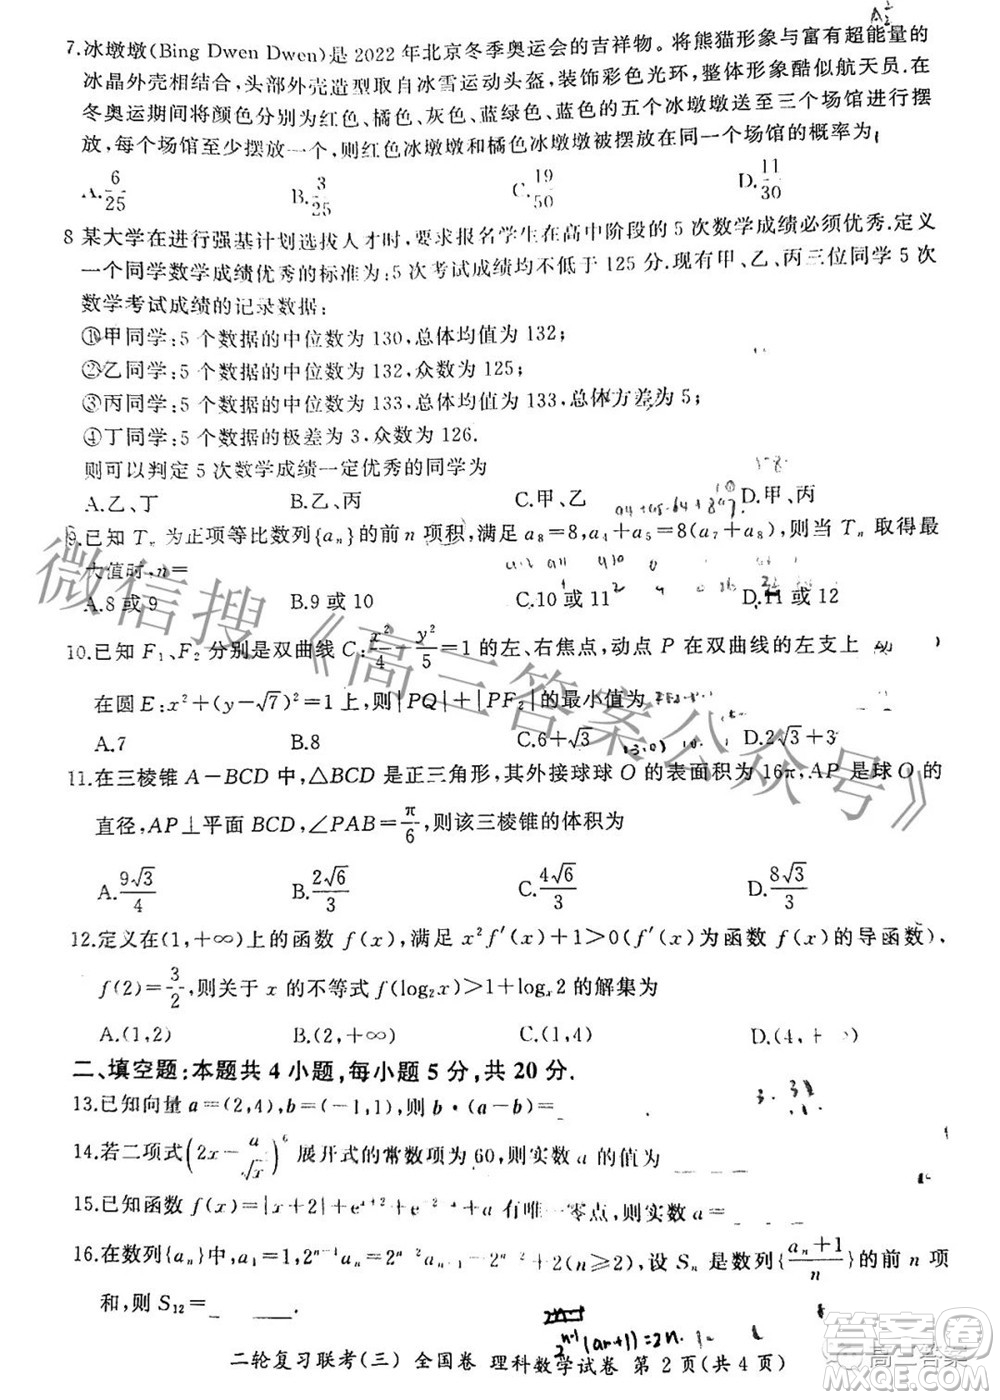 7.冰墩墩(Bing Dwen Dwen)是 2022 年北京冬季奥运会的吉祥物。将熊猫形象与富有超能量的
冰晶外壳相结合,头部外壳造型取自冰雪运动头盔,装饰彩色光环,整体形象酷似航天员.在
冬奥运期间将颜色分别为红色、橘色、黄色、蓝绿色、蓝色的五个冰墩墩放至三个场馆进行摆
放,每个场馆至少摆放一个,则红色冰墩墩和橘色冰墩墩被摆放在同一个场馆的概率为
A.6/25 B.3/25 C.19/50 D.11/30
8 某大学在进行强基计划选拔人才时,要求报名学生在高中阶段的 5 次数学成绩必须优秀.定义
一个同学数学成绩优秀的标准为:5 次考试成绩均不低于 125 分.现有甲、乙、丙三位同学 5 次
数学考试成绩的记录数据:
①甲同学:5 个数据的中位数为 130,总体均值为 132;
②乙同学:5 个数据的中位数为 132,众数为 125;
③丙同学:5 个数据的中位数为 133,总体均值为 133,总体方差为 5;
④丁同学:5 个数据的极差为 3,众数为 126.
则可以判定 5 次数学成绩一定优秀的同学为
A.乙、丁 B.乙、丙 C.甲、乙 D.甲、丙
9.已知 Tₙ 为正项等比数列{aₙ}的前 n 项积,满足 a₈=8,a₄+a₅=8(a₇+a₈),则当 Tₙ 取得最
大值时,n=
A.8 或 9 B.9 或 10 C.10 或 11 D.11 或 12
10.已知 F₁、F₂ 分别是双曲线 C:x²/4 - y²/5=1 的左、右焦点,动点 P 在双曲线的左支上
在圆 E:x²+(y-√7)²=1 上,则|PQ|+|PF₂|的最小值为
A.7 B.8 C.6+√3 D.2√3+3
11.在三棱锥 A-BCD 中,△BCD 是正三角形,其外接球球 O 的表面积为 16π,AP 是球 O 的
直径,AP⊥平面 BCD,∠PAB=π/6,则该三棱锥的体积为
A.9√3/4 B.2√6/3 C.4√6/3 D.8√3/3
12.定义在(1,+∞)上的函数 f(x),满足 x²f′(x)+1>0(f′(x)为函数 f(x)的导函数),
f(2)=3/2,则关于 x 的不等式 f(log₂x)>1+logₓ2 的解集为
A.(1,2) B.(2,+∞) C.(1,4) D.(4,+∞)
二、填空题:本题共 4 小题,每小题 5 分,共 20 分.
13.已知向量 a=(2,4),b=(-1,1),则 b·(a-b)=
14.若二项式(2x-a/√x)⁶展开式的常数项为 60,则实数 a 的值为
15.已知函数 f(x)=|x+2|+eˣ⁺²+ 有唯一零点,则实数 a=
16.在数列{aₙ}中,a₁=1,2ⁿ⁻¹aₙ=2ⁿ 2ⁿ⁻¹+2(n≥2),设 Sₙ 是数列{(aₙ+1)/n}的前 n 项
和,则 S₁₂=
二轮复习联考(三) 全国卷 理科数学试卷 第 2 页(共 4 页)
微信搜《高三答案公众号》
答案圈
高三答案